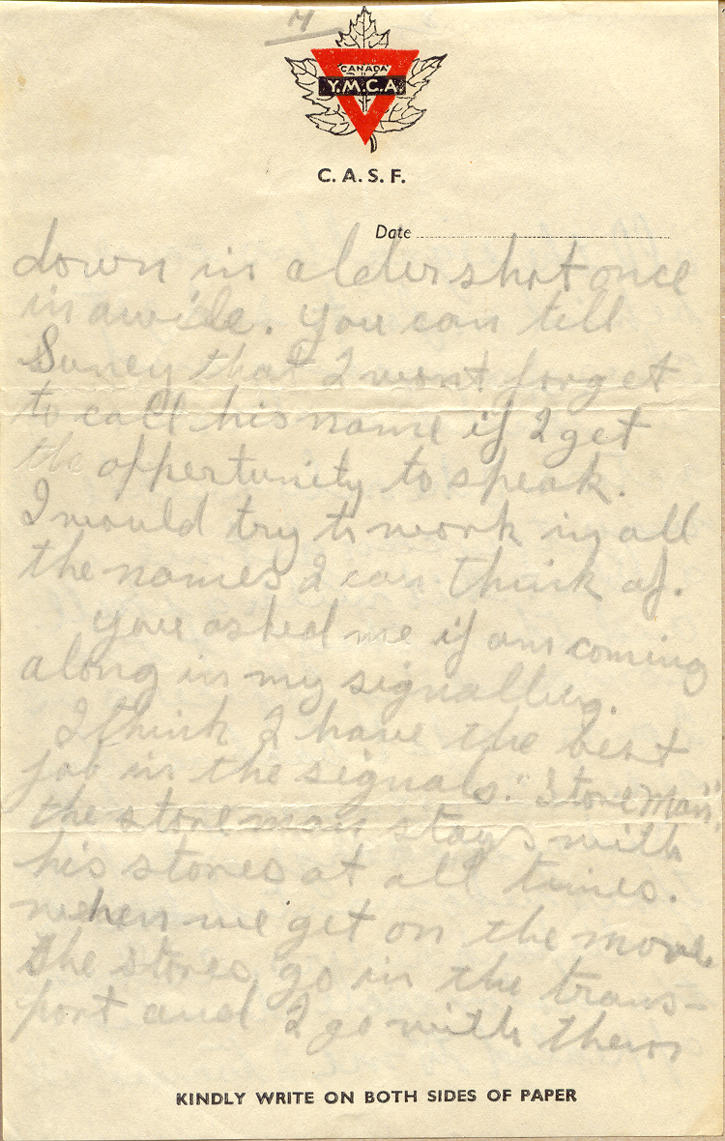 4
CANADA
Y.M.C.A.
C. A. S. F.
Date
down in aldershot once
in a wile. you can till
that I wont forget
to call his name if I get
the oppertunity to speak.
I would try to work in all
the names I can think of.
you asked me if am coming
along in my signalling.
I think I have the best
job in the signals. "Store Man",
the store man stays with
his stores at all times.
when we get on the move
the stores go in the trans-
port and I go with them
KINDLY WRITE ON BOTH SIDES OF PAPER